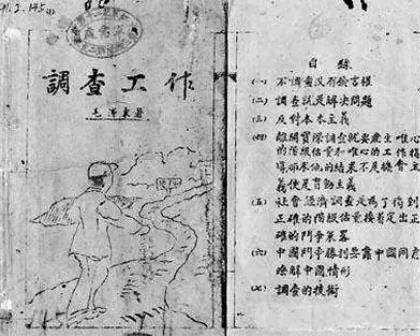 調查工作
毛澤東著
目錄
(一) 不調查没有發言權
(二) 調查就是解决問題
(三) 反对本本主義
(四) 離開實際調查就要產生唯心
的階級估量和唯心的工作指
導那末他的結果不是機會主
義便是盲動主義
(五) 社會經濟調查是為了得到
正確的階級估量接着定出正
確的鬥爭策略
(六) 中國鬥爭勝利要靠中國同志
瞭解中國情形
(七) 調查的技術